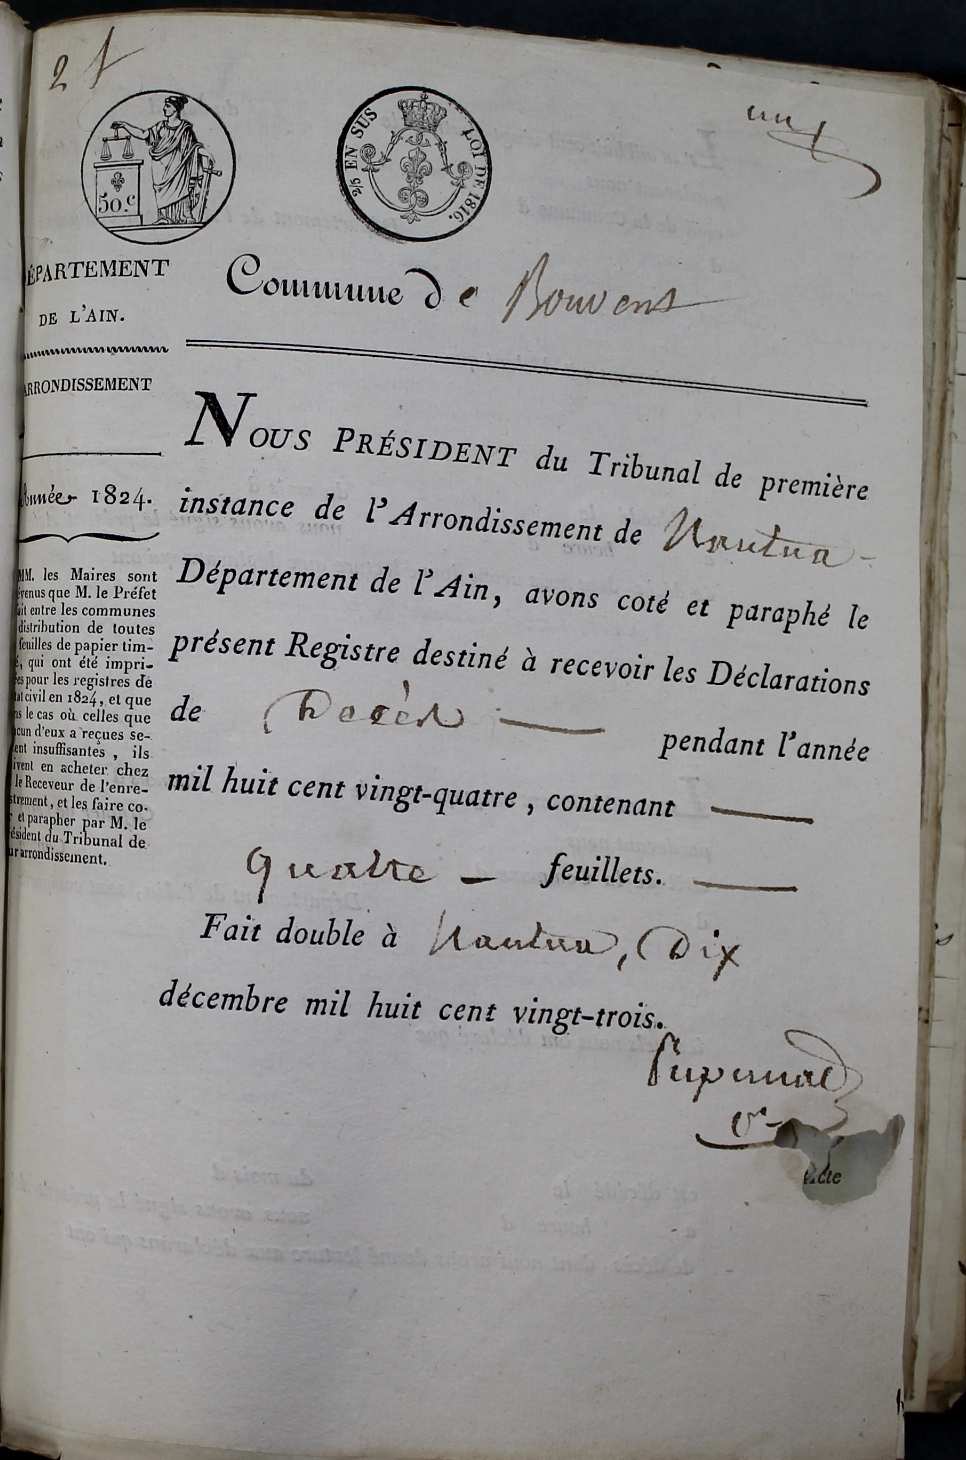 2
un
50.c
2/5 EN SUS
LOI DE 1816.
ÉPARTEMENT
DE L'AIN.
Commune de Bouvent
ARRONDISSEMENT
Année 1824.
MM. les Maires sont
évenus que M. le Préfet
ait entre les communes
distribution de toutes
feuilles de papier tim-
é, qui ont été impri-
es pour les registres de
tat civil en 1824, et que
ns le cas où celles que
acun d'eux a reçues se-
ent insuffisantes, ils
ivent en acheter chez
le Receveur de l'enre-
strement, et les faire co-
r et parapher par M. le
ésident du Tribunal de
ur arrondissement.
NOUS PRÉSIDENT du Tribunal de première
instance de l'Arrondissement de Nantua
Département de l'Ain, avons coté et paraphé le
présent Registre destiné à recevoir les Déclarations
de Décès — pendant l'année
mil huit cent vingt-quatre, contenant —
Quatre — feuillets. —
Fait double à Nantua, Dix
décembre mil huit cent vingt-trois.